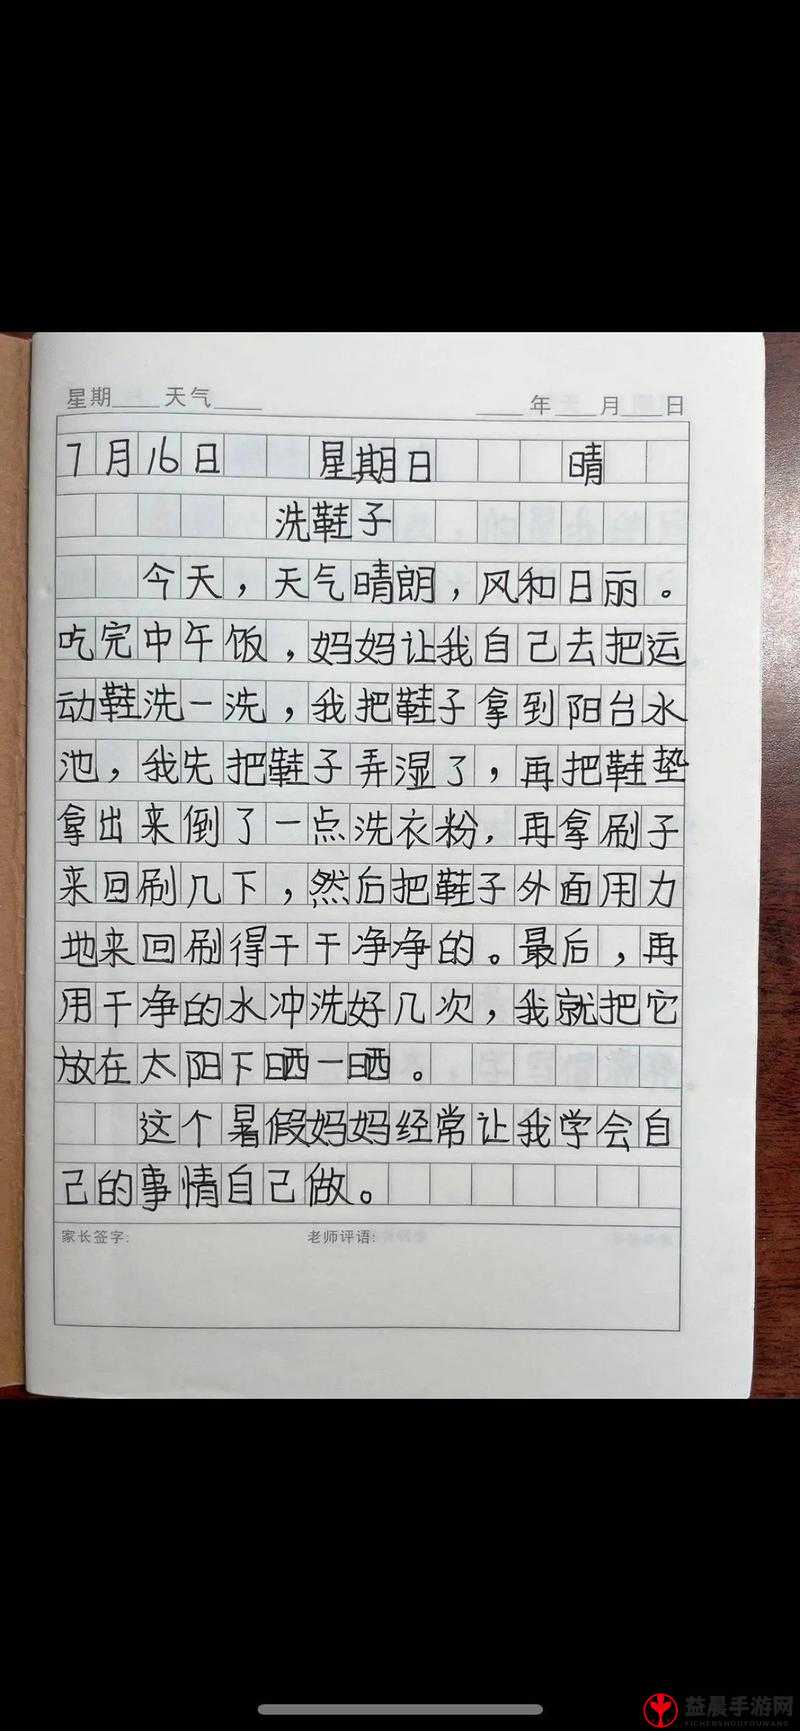 星期____天气____ ____年____月____日
7月16日 星期日 晴
洗鞋子
今天，天气晴朗，风和日丽。
吃完中午饭，妈妈让我自己去把运
动鞋洗一洗，我把鞋子拿到阳台水
池，我先把鞋子弄湿了，再把鞋垫
拿出来倒了一点洗衣粉，再拿刷子
来回刷几下，然后把鞋子外面用力
地来回刷得干干净净的。最后，再
用干净的水冲洗好几次，我就把它
放在太阳下晒一晒。
这个暑假妈妈经常让我学会自
己的事情自己做。
家长签字: 老师评语:
益晨手游网
YICHENSHOUYOUWANG